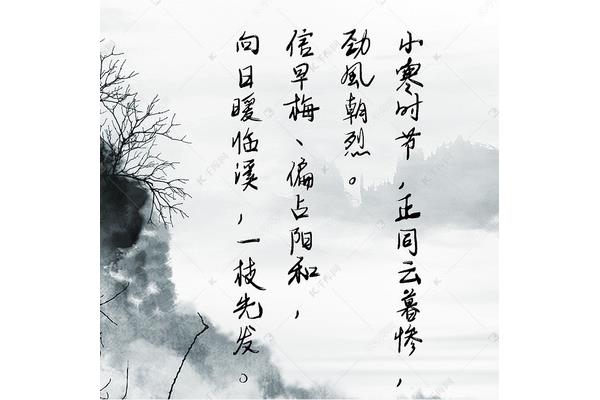 小寒时节，正同云暮惨，
劲風朝烈。
信早梅、偏占阳和，
向日暖临溪，一枝先发。